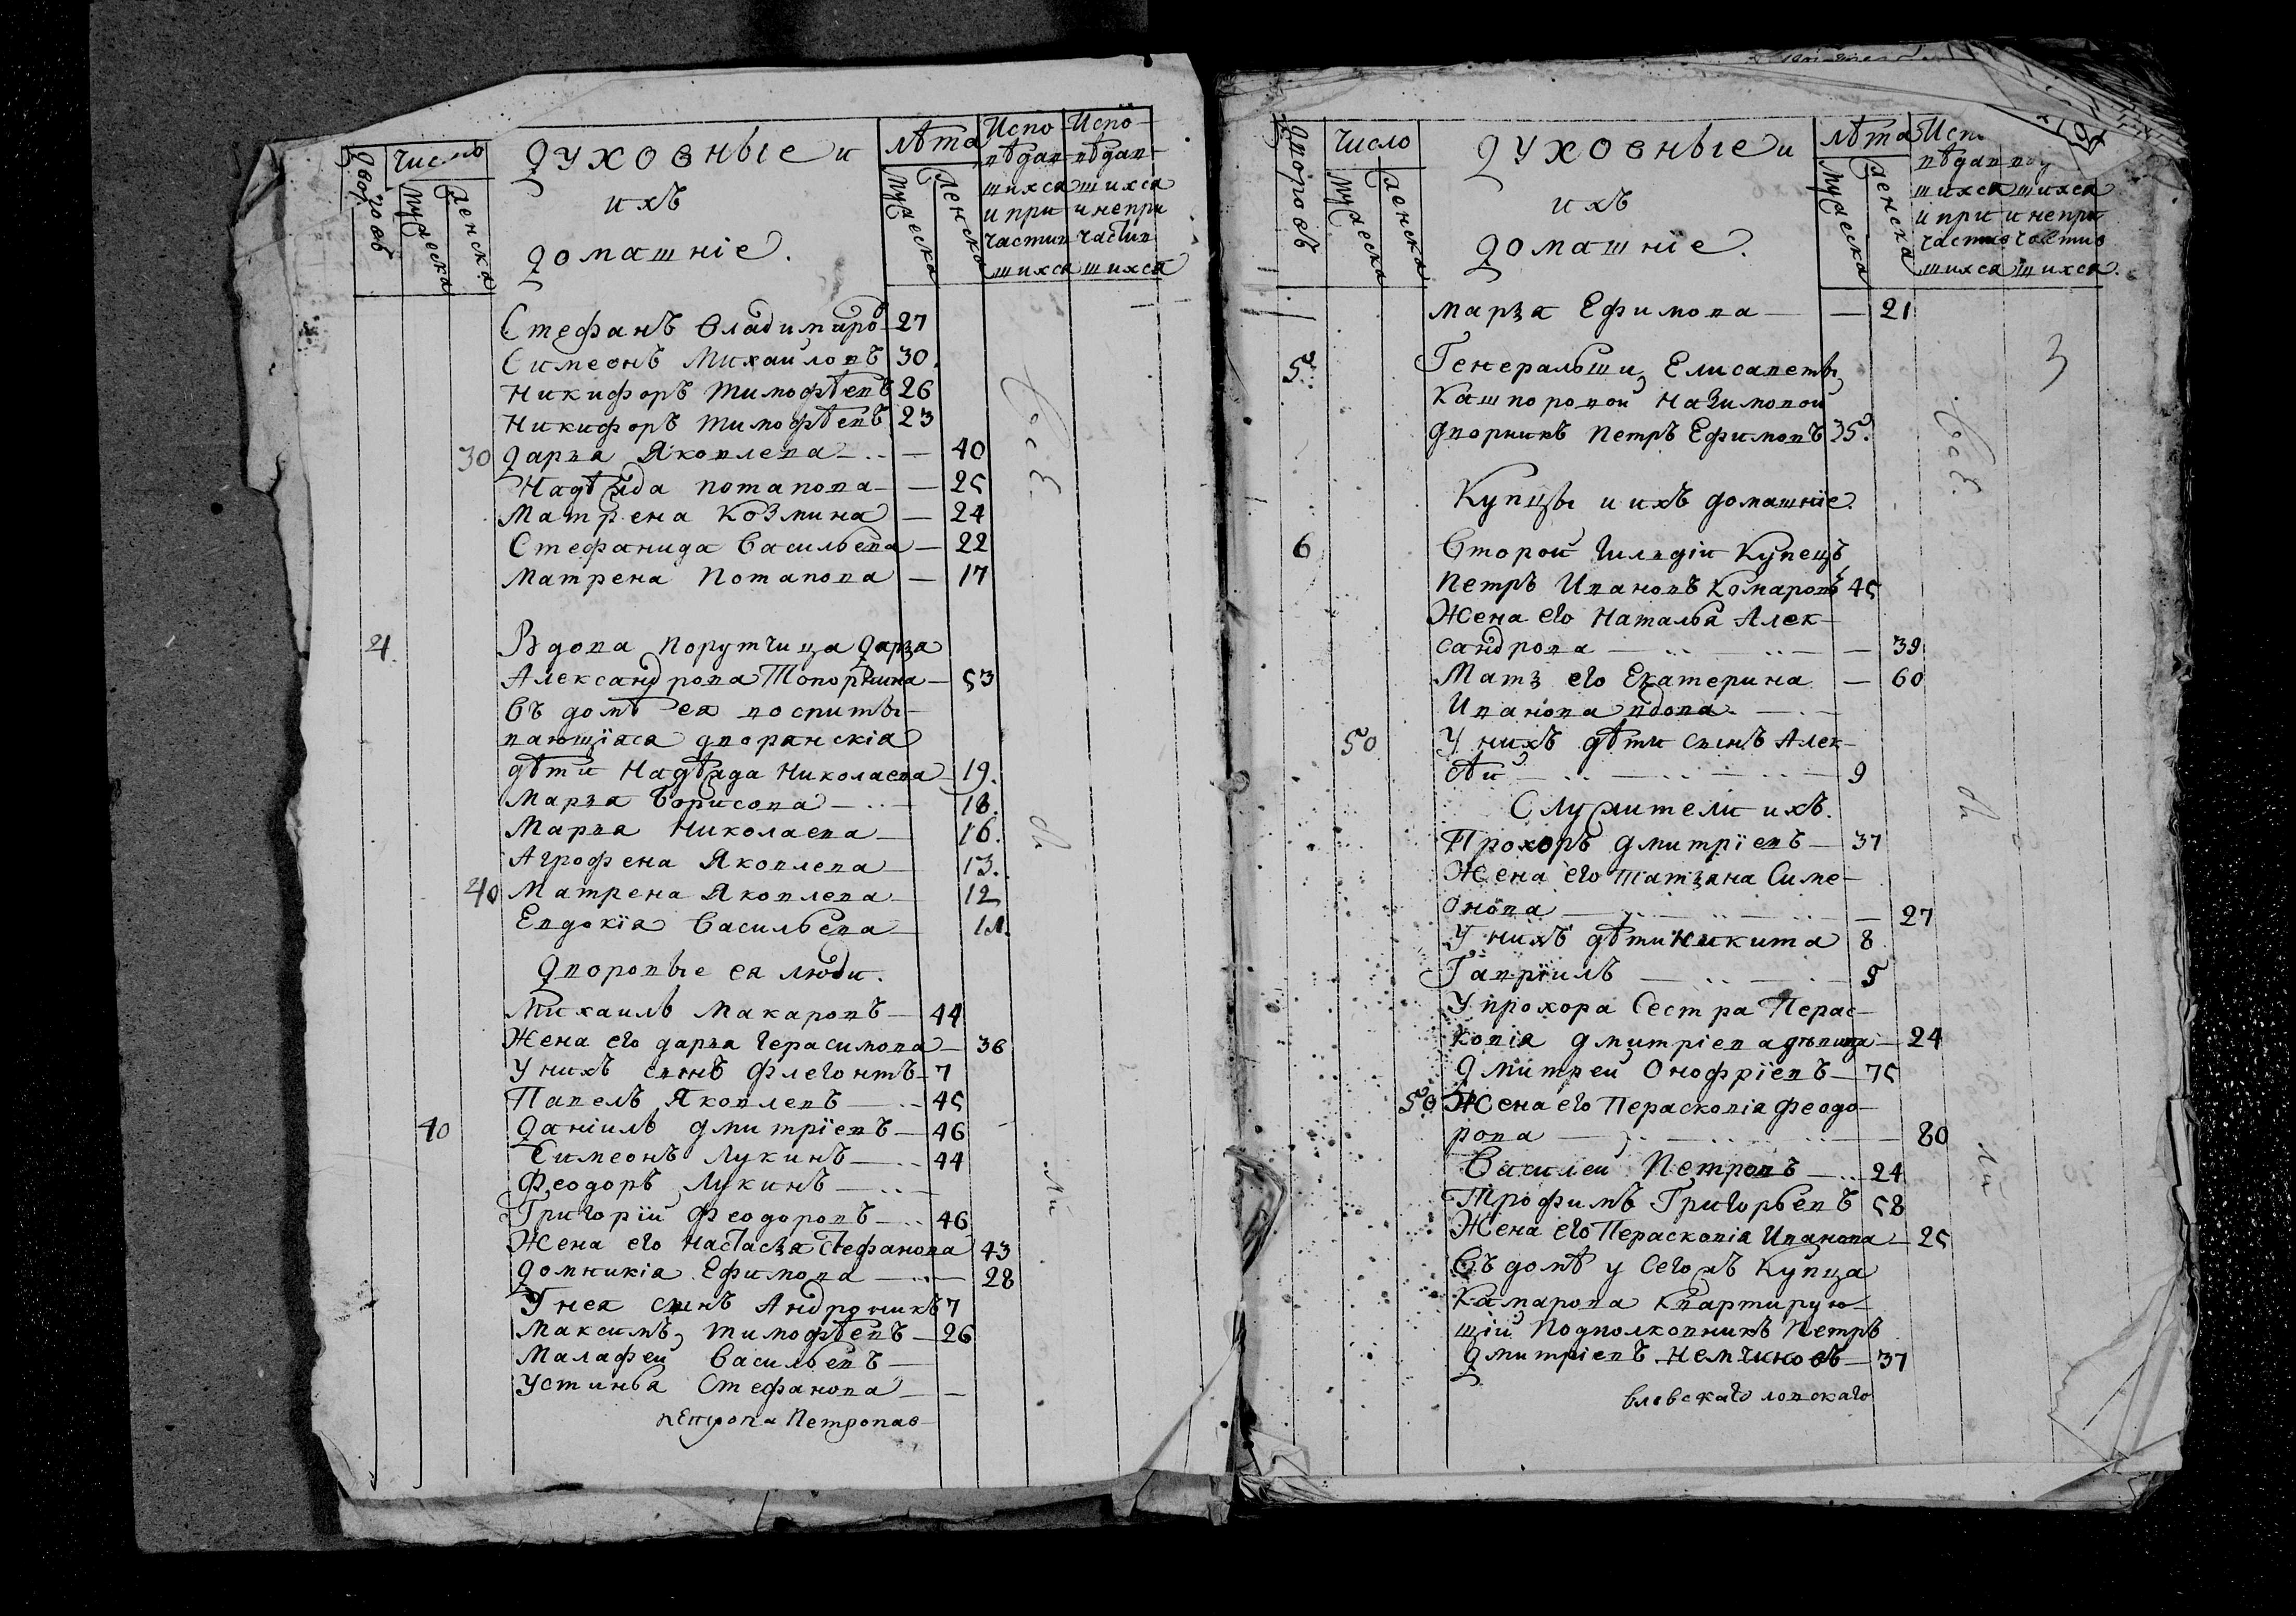 Дворовъ
Число
Мужеска
Женска
Духовные и
ихъ
домашніе.
лѣта
Мужеска
Женска
Испо- Испо-
вѣдав- вѣдав-
шихся шихся
и при и непри
частив частив
шихся шихся
Стефанъ Владимиро 27
Симеонъ Михайловъ 30.
Никифоръ Тимофѣевъ 26
Никифоръ Тимофѣевъ 23
30 Дарья Яковлева — 40
Надѣжда Потапова — 25
Матрена Козмина — 24
Стефанида Васильева — 22
Матрена Потапова — 17
4. Вдова Порутчица Дарья
Александрова Топорнина — 53
Въ домѣ ея воспиты-
вающіяся дворянскія
дѣти Надѣжда Николаева 19.
Марья Борисова — 18.
Марья Николаева — 16.
Агрофена Яковлева — 13.
40 Матрена Яковлева — 12
Евдокія Васильева — 11.
Дворовые ея люди.
Михаилъ Макаровъ — 44
Жена его Дарья Герасимова — 36
У нихъ сынъ Флегонтъ — 7
Павелъ Яковлевъ — 45
40 Даніилъ Дмитріевъ — 46
Симеонъ Лукинъ — 44
Феодоръ Лукинъ —
Григорій Феодоровъ — 46
Жена его Настасья Стефанова 43
Домникія Ефимова — 28
У нея сынъ Андроникъ 7
Максимъ Тимофѣевъ — 26
Малафей Васильевъ —
Устинья Стефанова —
Петропав-
Всѣ
бы
ли
Дворовъ
Число
Мужеска
Женска
Духовные и
ихъ
домашніе.
лѣта
Мужеска
Женска
Исп
вѣдав
шихся шихся
и при и непри
частив частив
шихся шихся.
3
Марья Ефимова — 21
5. Генеральши Елисаветы
Кашпоровой Начимовой
дворникъ Петръ Ефимовъ 35.
Купцы и ихъ домашніе.
6 Второй Гильдіи Купецъ
Петръ Ивановъ Комаровъ 45
Жена его Наталья Алек-
сандрова — 39
Мать его Екатерина — 60
Иванова вдова.
50 У нихъ дѣти сынъ Алек-
сѣй — 9
Служители ихъ.
Прохоръ Дмитріевъ — 37
Жена его Татьяна Симе-
онова — 27
У нихъ дѣти Никита 8
Гавріилъ — 5
У Прохора Сестра Перас-
ковія Дмитріева дѣвица — 24
Дмитрей Онофріевъ — 75
50 Жена его Перасковія Феодо-
рова — 80
Василей Петровъ — 24
Трофимъ Григорьевъ 58
Жена его Перасковія Иванова — 25
Въ домѣ у Сегожъ Купца
Камарова Квартирую-
щій Подполковникъ Петръ
Дмитріевъ Немчиновъ — 37
Всѣ
бы
ли